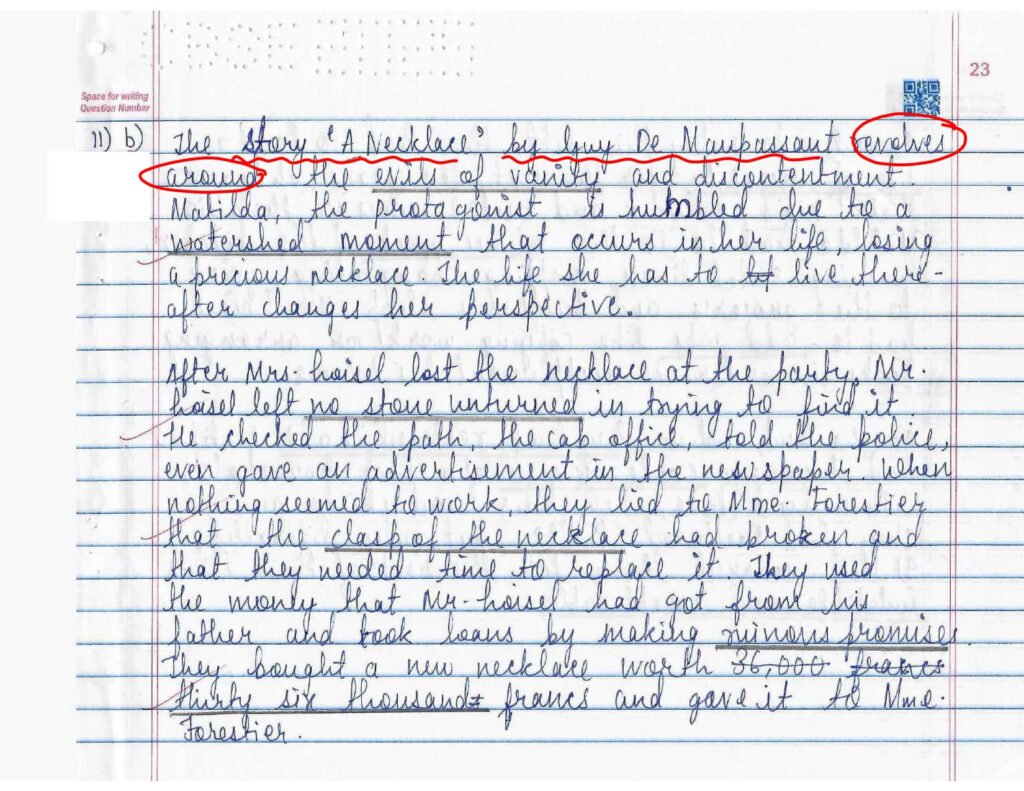 23
Space for writing
Question Number
11) b) The story 'A Necklace' by Guy De Maupassant revolves
around the evils of vanity and discontentment.
Matilda, the protagonist is humbled due to a
watershed moment that occurs in her life, losing
a precious necklace. The life she has to live there-
after changes her perspective.
After Mrs. Loisel lost the necklace at the party, Mr.
Loisel left no stone unturned in trying to find it.
He checked the path, the cab office, told the police,
even gave an advertisement in the newspaper. When
nothing seemed to work, they lied to Mme. Forestier
that the clasp of the necklace had broken and
that they needed time to replace it. They used
the money that Mr. Loisel had got from his
father and took loans by making ruinous promises.
They bought a new necklace worth 36,000 francs
thirty six thousand francs and gave it to Mme.
Forestier.